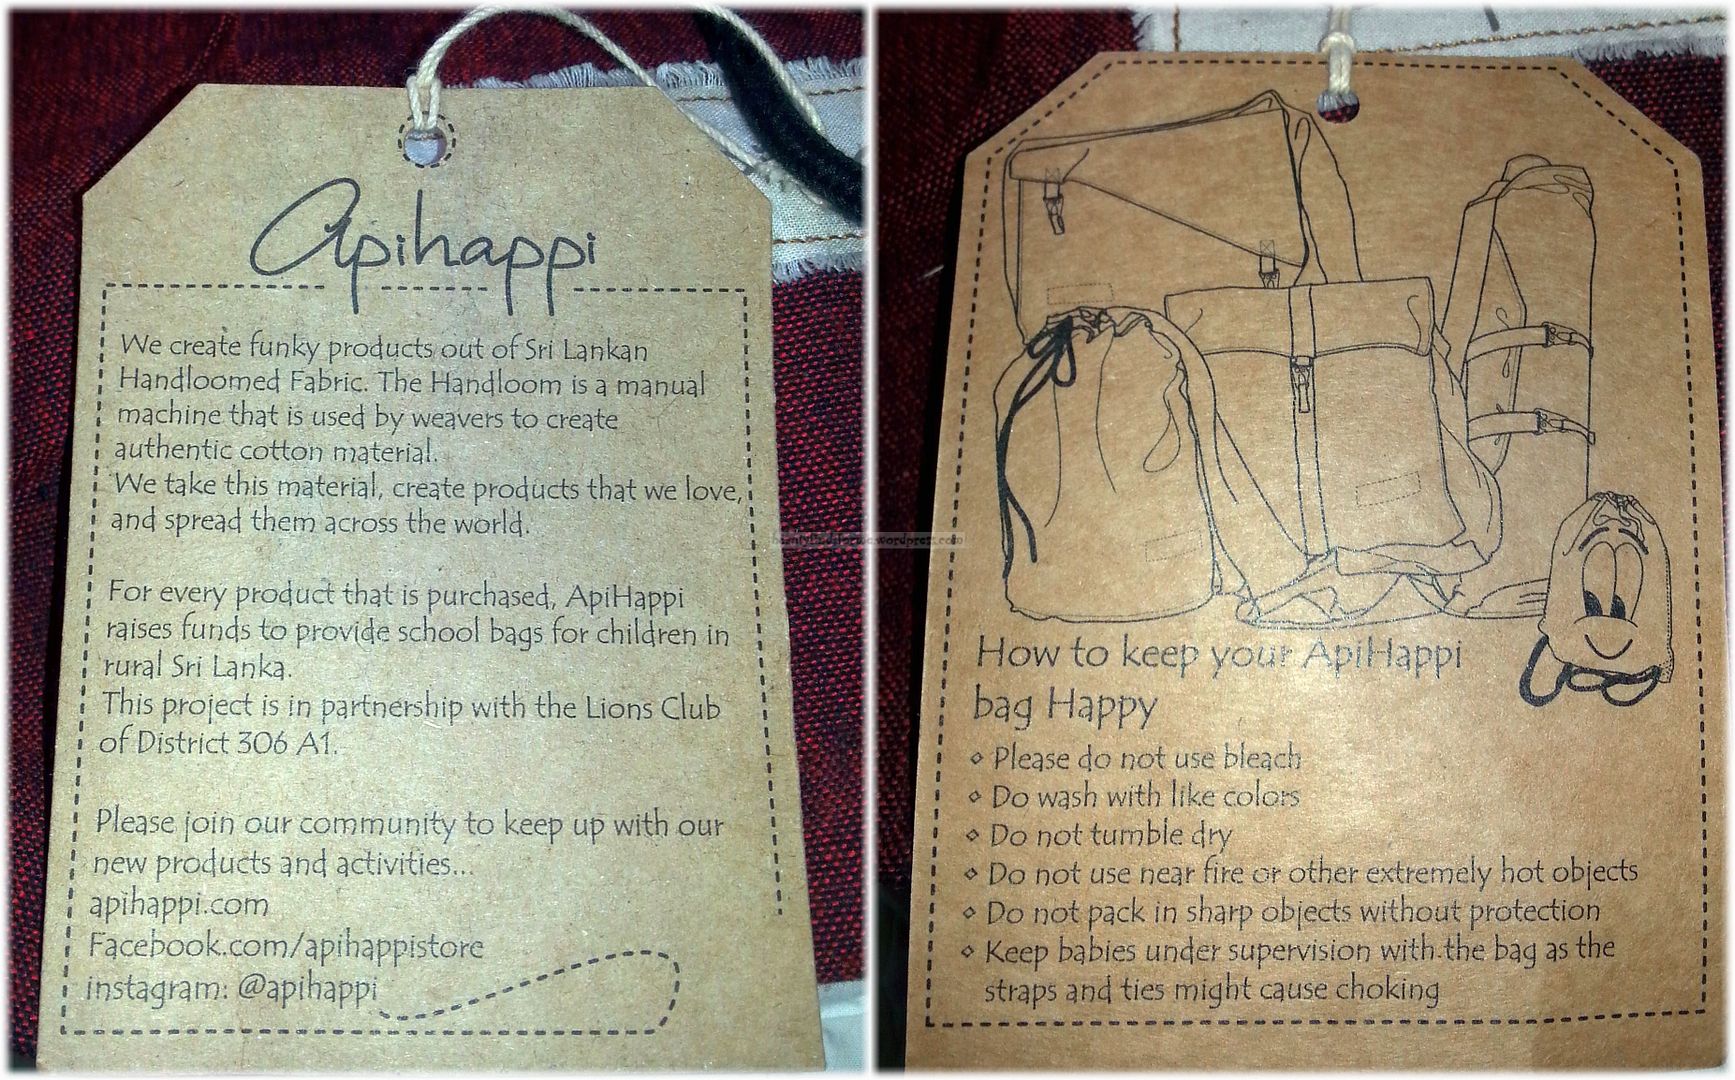 Apihappi
We create funky products out of Sri Lankan
Handloomed Fabric. The Handloom is a manual
machine that is used by weavers to create
authentic cotton material.
We take this material, create products that we love,
and spread them across the world.
For every product that is purchased, ApiHappi
raises funds to provide school bags for children in
rural Sri Lanka.
This project is in partnership with the Lions Club
of District 306 A1.
Please join our community to keep up with our
new products and activities...
apihappi.com
Facebook.com/apihappistore
instagram: @apihappi
How to keep your ApiHappi
bag Happy
⋄ Please do not use bleach
⋄ Do wash with like colors
⋄ Do not tumble dry
⋄ Do not use near fire or other extremely hot objects
⋄ Do not pack in sharp objects without protection
⋄ Keep babies under supervision with the bag as the
straps and ties might cause choking